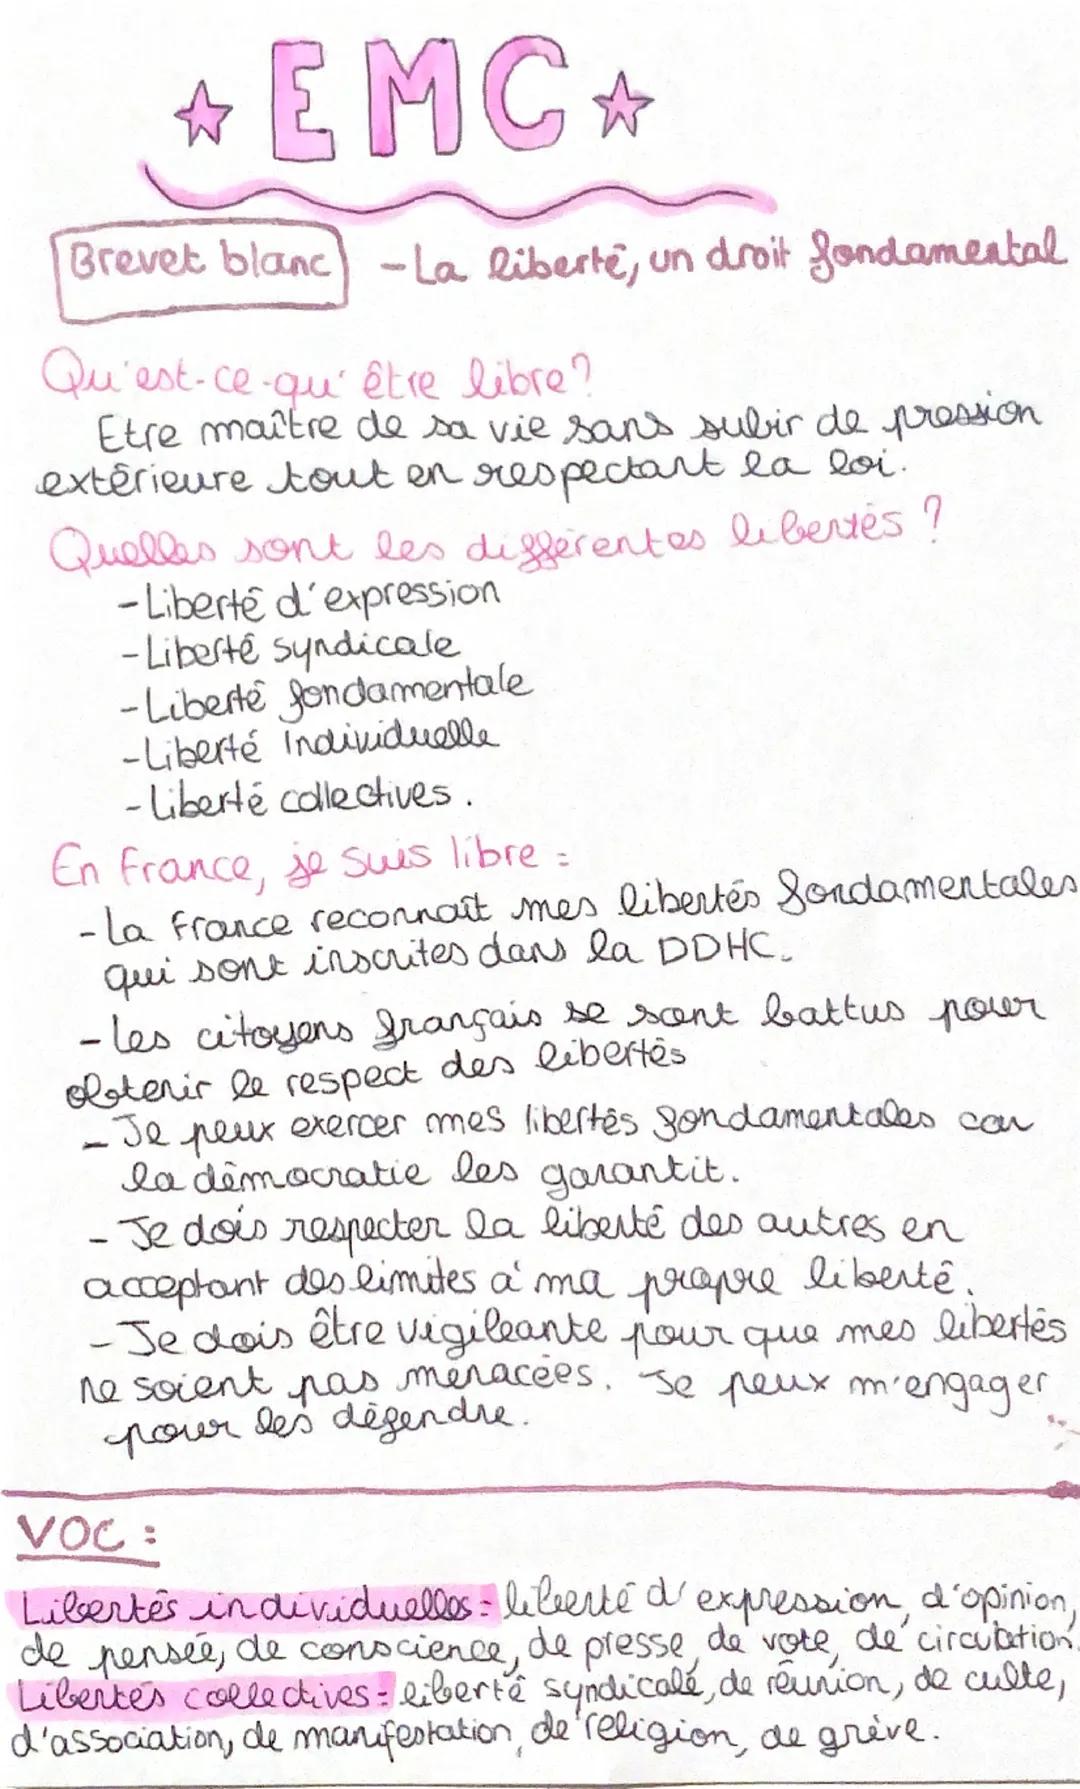 EMC
Brevet blanc - La liberté, un droit fondamental
Qu'est-ce-qu'être libre?
Etre maître de sa vie sans subir de pression
extérieure tout en respectant la loi.
Quelles sont les différentes libertés ?
- Liberté d'expression
- Liberté syndicale
- Liberté fondamentale
- Liberté Individuelle
- Liberté collectives.
En France, je suis libre :
- La France reconnaît mes libertés fondamentales
qui sont inscrites dans la DDHC.
- Les citoyens français se sont battus pour
obtenir le respect des libertés
- Je peux exercer mes libertés fondamentales car
la démocratie les garantit.
- Je dois respecter la liberté des autres en
acceptant des limites à ma propre liberté.
- Je dois être vigileante pour que mes libertés
ne soient pas menacées. Je peux m'engager
pour les défendre.
VOC :
Libertés individuelles : liberté d'expression, d'opinion,
de pensée, de conscience, de presse, de vote, de circulation.
Libertés collectives : liberté syndicale, de réunion, de culte,
d'association, de manifestation, de religion, de grève.